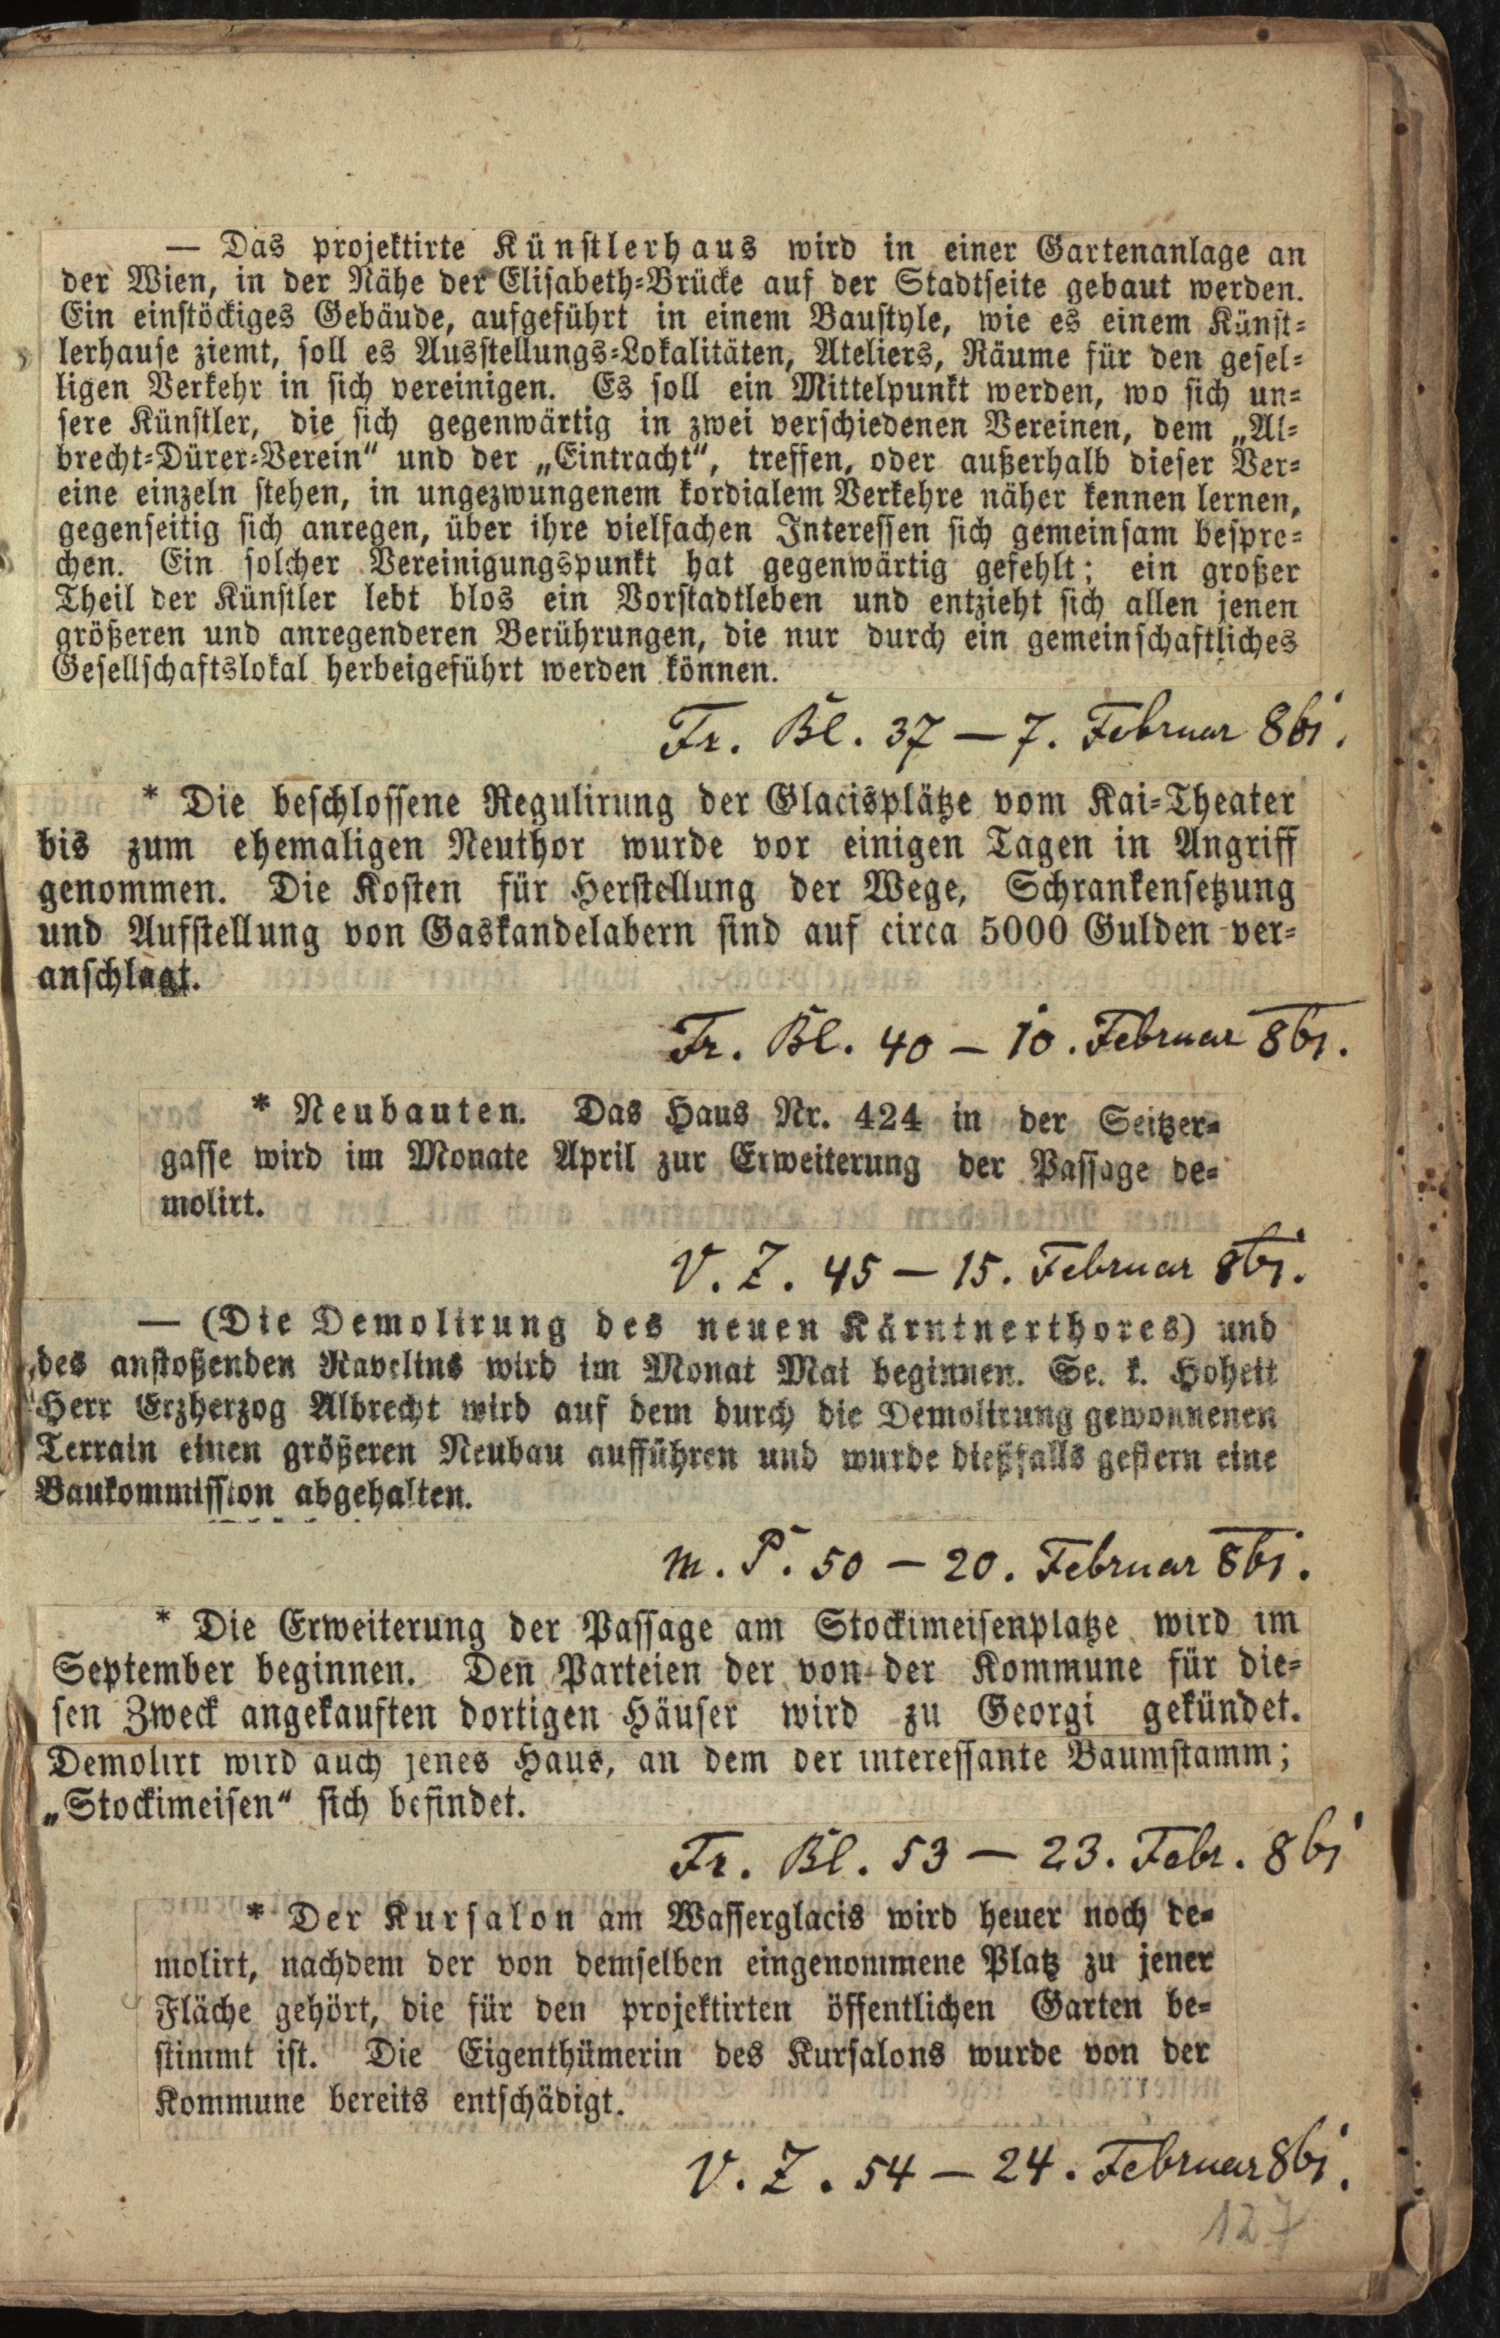 — Das projektirte Künstlerhaus wird in einer Gartenanlage an
der Wien, in der Nähe der Elisabeth=Brücke auf der Stadtseite gebaut werden.
Ein einstöckiges Gebäude, aufgeführt in einem Baustyle, wie es einem Künst=
lerhause ziemt, soll es Ausstellungs=Lokalitäten, Ateliers, Räume für den gesel=
ligen Verkehr in sich vereinigen. Es soll ein Mittelpunkt werden, wo sich un=
sere Künstler, die sich gegenwärtig in zwei verschiedenen Vereinen, dem „Al=
brecht=Dürer=Verein“ und der „Eintracht“, treffen, oder außerhalb dieser Ver=
eine einzeln stehen, in ungezwungenem kordialem Verkehre näher kennen lernen,
gegenseitig sich anregen, über ihre vielfachen Interessen sich gemeinsam bespre=
chen. Ein solcher Vereinigungspunkt hat gegenwärtig gefehlt; ein großer
Theil der Künstler lebt blos ein Vorstadtleben und entzieht sich allen jenen
größeren und anregenderen Berührungen, die nur durch ein gemeinschaftliches
Gesellschaftslokal herbeigeführt werden können.
Fr. Bl. 37 — 7. Februar 861.
* Die beschlossene Regulirung der Glacisplätze vom Kai=Theater
bis zum ehemaligen Neuthor wurde vor einigen Tagen in Angriff
genommen. Die Kosten für Herstellung der Wege, Schrankensetzung
und Aufstellung von Gaskandelabern sind auf circa 5000 Gulden ver=
anschlagt.
Fr. Bl. 40 — 10. Februar 861.
* Neubauten. Das Haus Nr. 424 in der Seitzer=
gasse wird im Monate April zur Erweiterung der Passage de=
molirt.
V. Z. 45 — 15. Februar 861.
— (Die Demolirung des neuen Kärntnerthores) und
des anstoßenden Ravelins wird im Monat Mai beginnen. Se. k. Hoheit
Herr Erzherzog Albrecht wird auf dem durch die Demolirung gewonnenen
Terrain einen größeren Neubau aufführen und wurde dießfalls gestern eine
Baukommission abgehalten.
M. P. 50 — 20. Februar 861.
* Die Erweiterung der Passage am Stockimeisenplatze wird im
September beginnen. Den Parteien der von der Kommune für die=
sen Zweck angekauften dortigen Häuser wird zu Georgi gekündet.
Demolirt wird auch jenes Haus, an dem der interessante Baumstamm;
„Stockimeisen“ sich befindet.
Fr. Bl. 53 — 23. Febr. 861
* Der Kursalon am Wasserglacis wird heuer noch de=
molirt, nachdem der von demselben eingenommene Platz zu jener
Fläche gehört, die für den projektirten öffentlichen Garten be=
stimmt ist. Die Eigenthümerin des Kursalons wurde von der
Kommune bereits entschädigt.
V. Z. 54 — 24. Februar 861.
127